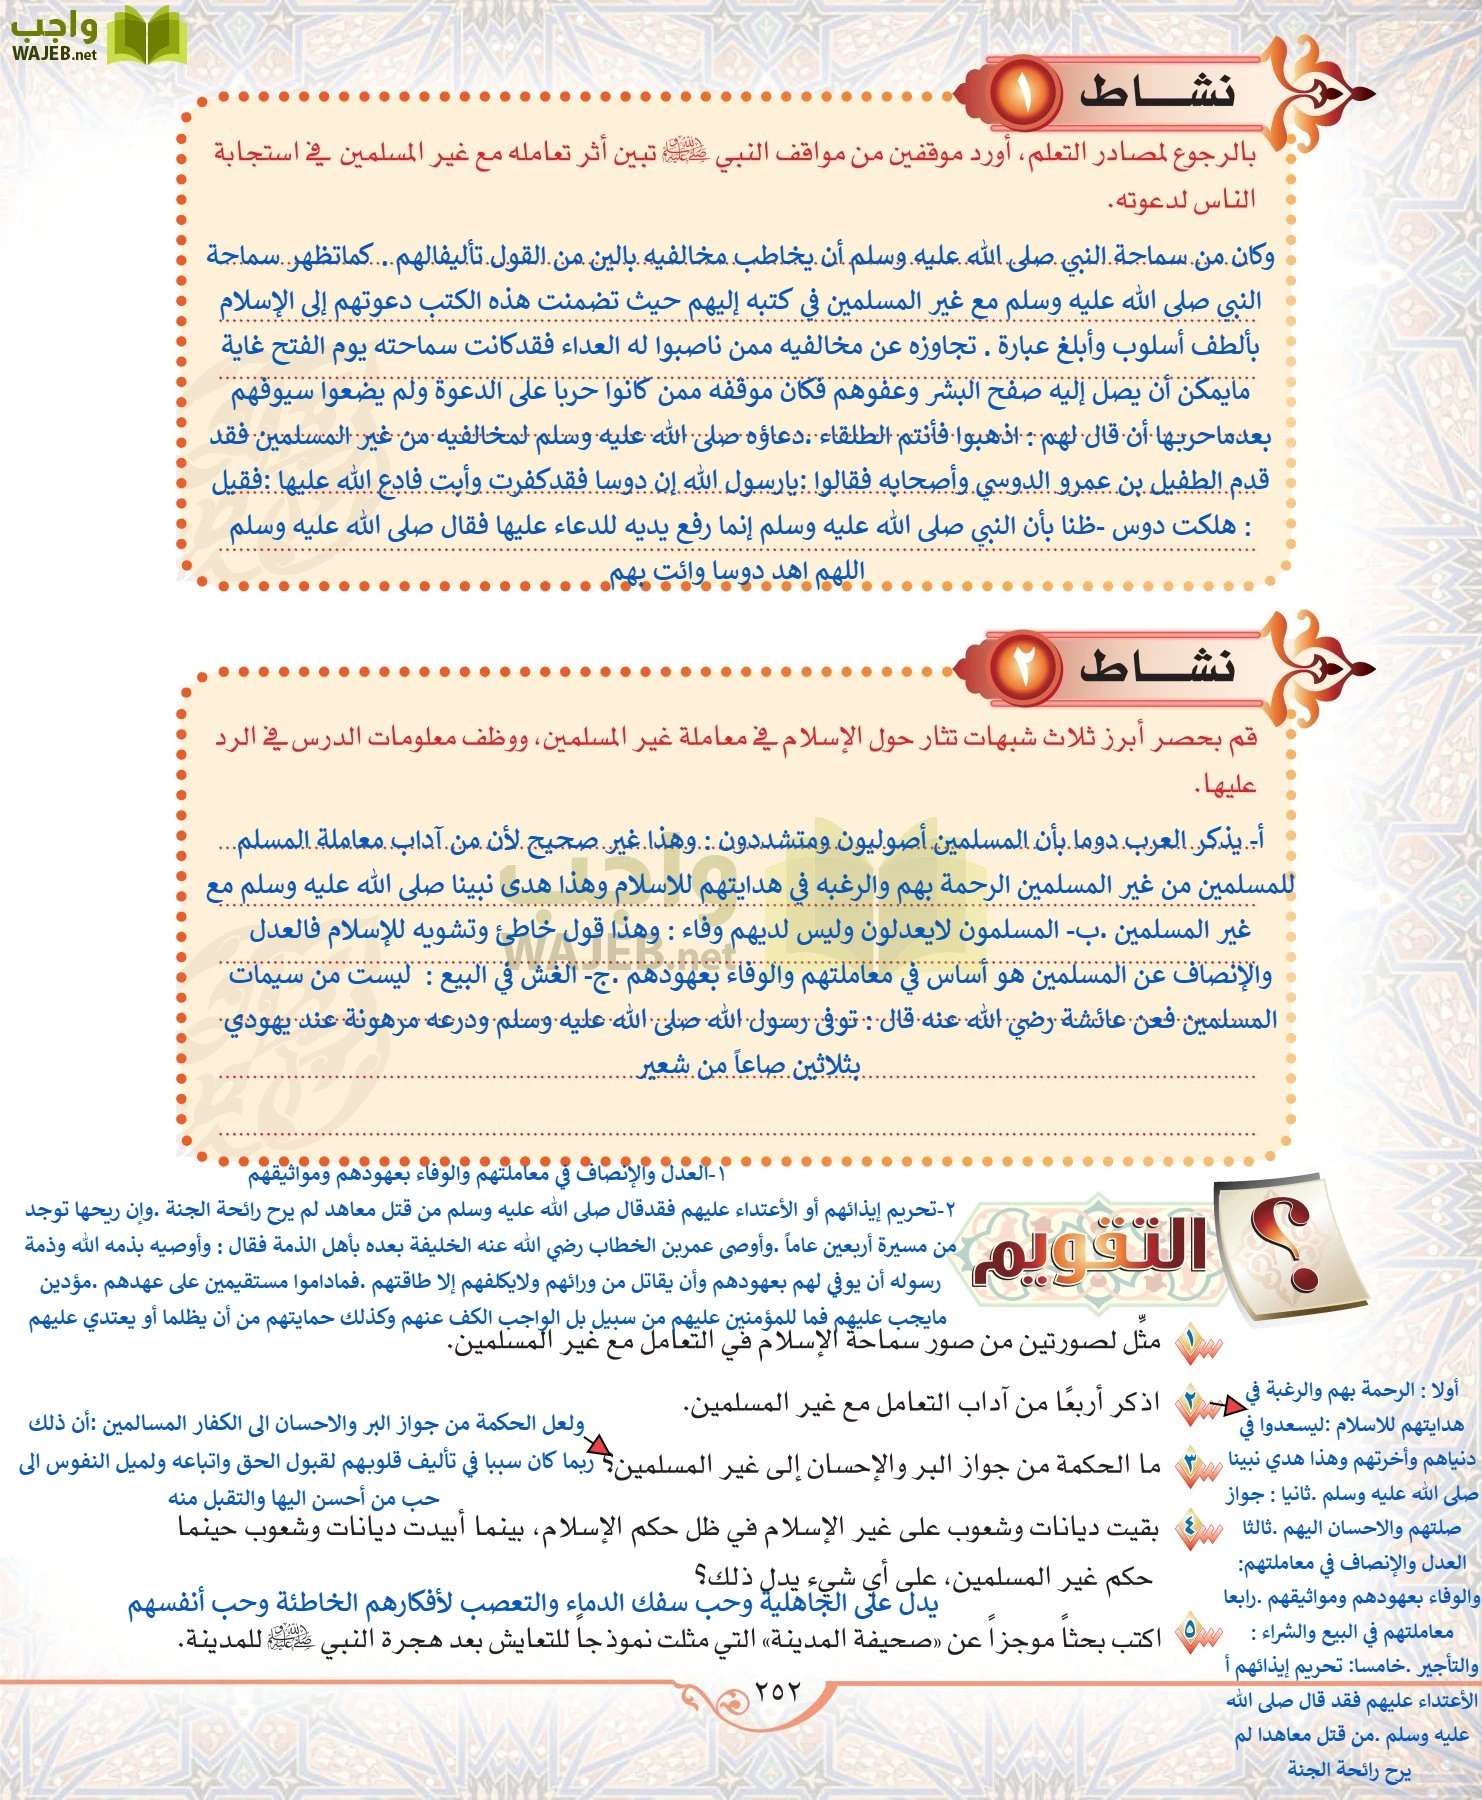 واجب
WAJEB.net
نشـــاط ١
بالرجوع لمصادر التعلم، أورد موقفين من مواقف النبي ﷺ تبين أثر تعامله مع غير المسلمين في استجابة
الناس لدعوته.
وكان من سماحة النبي صلى الله عليه وسلم أن يخاطب مخالفيه بالين من القول تأليفالهم . كماتظهر سماحة
النبي صلى الله عليه وسلم مع غير المسلمين في كتبه إليهم حيث تضمنت هذه الكتب دعوتهم إلى الإسلام
بألطف أسلوب وأبلغ عبارة . تجاوزه عن مخالفيه ممن ناصبوا له العداء فقدكانت سماحته يوم الفتح غاية
مايمكن أن يصل إليه صفح البشر وعفوهم فكان موقفه ممن كانوا حربا على الدعوة ولم يضعوا سيوفهم
بعدماحربها أن قال لهم : اذهبوا فأنتم الطلقاء .دعاؤه صلى الله عليه وسلم لمخالفيه من غير المسلمين فقد
قدم الطفيل بن عمرو الدوسي وأصحابه فقالوا :يارسول الله إن دوسا فقدكفرت وأبت فادع الله عليها :فقيل
: هلكت دوس -ظنا بأن النبي صلى الله عليه وسلم إنما رفع يديه للدعاء عليها فقال صلى الله عليه وسلم
اللهم اهد دوسا وائت بهم
نشـــاط ٢
قم بحصر أبرز ثلاث شبهات تثار حول الإسلام في معاملة غير المسلمين، ووظف معلومات الدرس في الرد
عليها.
أ- يذكر العرب دوما بأن المسلمين أصوليون ومتشددون : وهذا غير صحيح لأن من آداب معاملة المسلم
للمسلمين من غير المسلمين الرحمة بهم والرغبه في هدايتهم للاسلام وهذا هدى نبينا صلى الله عليه وسلم مع
غير المسلمين .ب- المسلمون لايعدلون وليس لديهم وفاء : وهذا قول خاطئ وتشويه للإسلام فالعدل
والإنصاف عن المسلمين هو أساس في معاملتهم والوفاء بعهودهم .ج- الغش في البيع : ليست من سيمات
المسلمين فعن عائشة رضي الله عنه قال : توفى رسول الله صلى الله عليه وسلم ودرعه مرهونة عند يهودي
بثلاثين صاعاً من شعير
واجب
WAJEB.net
التقويم
١-العدل والإنصاف في معاملتهم والوفاء بعهودهم ومواثيقهم
٢-تحريم إيذائهم أو الأعتداء عليهم فقدقال صلى الله عليه وسلم من قتل معاهد لم يرح رائحة الجنة .وإن ريحها توجد
من مسيرة أربعين عاماً .وأوصى عمربن الخطاب رضي الله عنه الخليفة بعده بأهل الذمة فقال : وأوصيه بذمه الله وذمة
رسوله أن يوفي لهم بعهودهم وأن يقاتل من ورائهم ولايكلفهم إلا طاقتهم .فماداموا مستقيمين على عهدهم .مؤدين
مايجب عليهم فما للمؤمنين عليهم من سبيل بل الواجب الكف عنهم وكذلك حمايتهم من أن يظلما أو يعتدي عليهم
١ مثِّل لصورتين من صور سماحة الإسلام في التعامل مع غير المسلمين.
٢ اذكر أربعًا من آداب التعامل مع غير المسلمين.
أولا : الرحمة بهم والرغبة في
هدايتهم للاسلام :ليسعدوا في
دنياهم وأخرتهم وهذا هدي نبينا
صلى الله عليه وسلم .ثانيا : جواز
صلتهم والاحسان اليهم .ثالثا
العدل والإنصاف في معاملتهم:
والوفاء بعهودهم ومواثيقهم .رابعا
معاملتهم في البيع والشراء :
والتأجير .خامسا: تحريم إيذائهم أ
الأعتداء عليهم فقد قال صلى الله
عليه وسلم .من قتل معاهدا لم
يرح رائحة الجنة
٣ ما الحكمة من جواز البر والإحسان إلى غير المسلمين؟
ولعل الحكمة من جواز البر والاحسان الى الكفار المسالمين :أن ذلك
ربما كان سببا في تأليف قلوبهم لقبول الحق واتباعه ولميل النفوس الى
حب من أحسن اليها والتقبل منه
٤ بقيت ديانات وشعوب على غير الإسلام في ظل حكم الإسلام، بينما أبيدت ديانات وشعوب حينما
حكم غير المسلمين، على أي شيء يدل ذلك؟
يدل على الجاهلية وحب سفك الدماء والتعصب لأفكارهم الخاطئة وحب أنفسهم
٥ اكتب بحثاً موجزاً عن «صحيفة المدينة» التي مثلت نموذجاً للتعايش بعد هجرة النبي ﷺ للمدينة.
٢٥٢